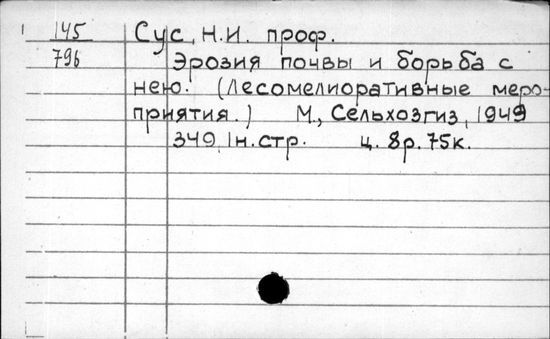 145 Сус, Н.И. проф.
796 Эрозия почвы и борьба с
нею. (Лесомелиоративные меро-
приятия.) М., Сельхозгиз, 1949
349, 1н.стр. ц. 8р. 75к.